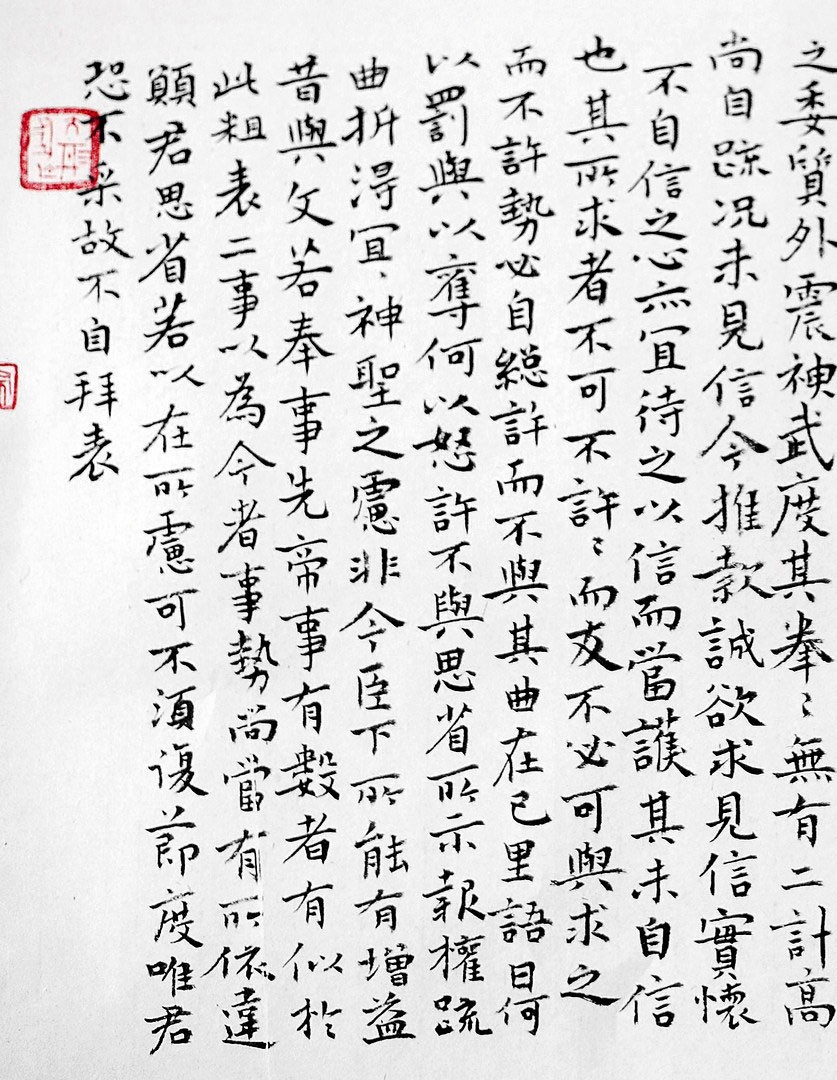 之委質外震神武度其拳〻無有二計高
尚自踈况未見信今推款誠欲求見信實懷
不自信之心亦宜待之以信而當護其未自信
也其所求者不可不許〻而反不必可與求之
而不許勢必自絕許而不與其曲在己里語曰何
以罰與以奪何以怒許不與思省所示報權疏
曲折得宜〻神聖之慮非今臣下所能有增益
昔與文若奉事先帝事有數者有似於
此粗表二事以為今者事勢尚當有所依違
願君思省若以在所慮可不須復節度唯君
恐不采故不自拜表